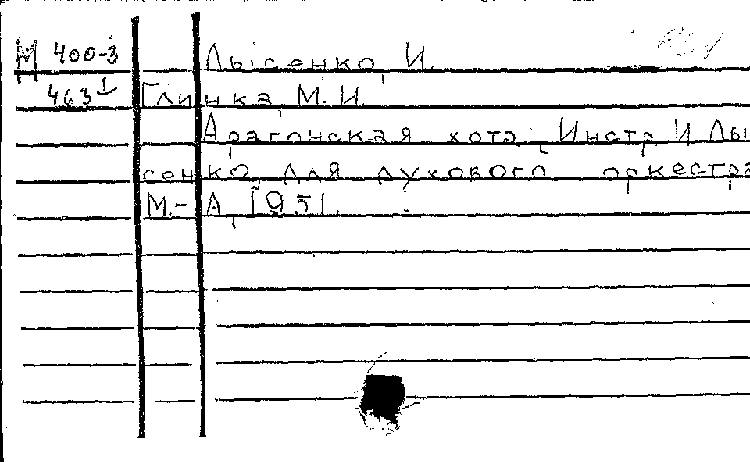 М 400-3 Лысенко, И.
463 1 Глинка, М. И.
Арагонская хота. Инстр. И. Лы
сенко для духового оркестра
М.-Л., 1951.